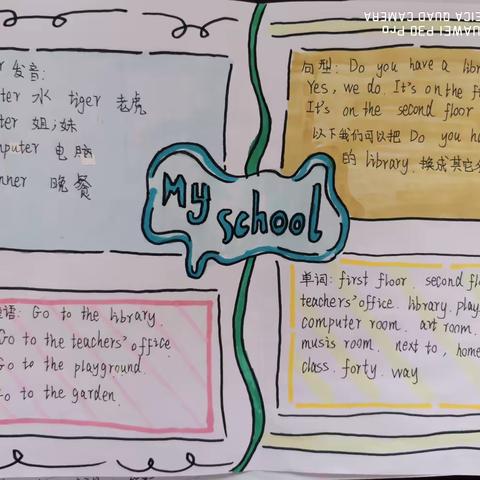 发音:
水 tiger 老虎
姐;妹
电脑
晚餐
句型: Do you have a
Yes, we do. It's on the
It's on the second floor
以下我们可以把 Do you
的 library. 换成其它
My school
Go to the library.
Go to the teachers' office
Go to the playground.
to the garden.
单词: first floor. second
teachers' office. library.
computer room. art room.
musis room. next to,
class. forty. way
HUAWEI P30 Pro
LEICA QUAD CAMERA